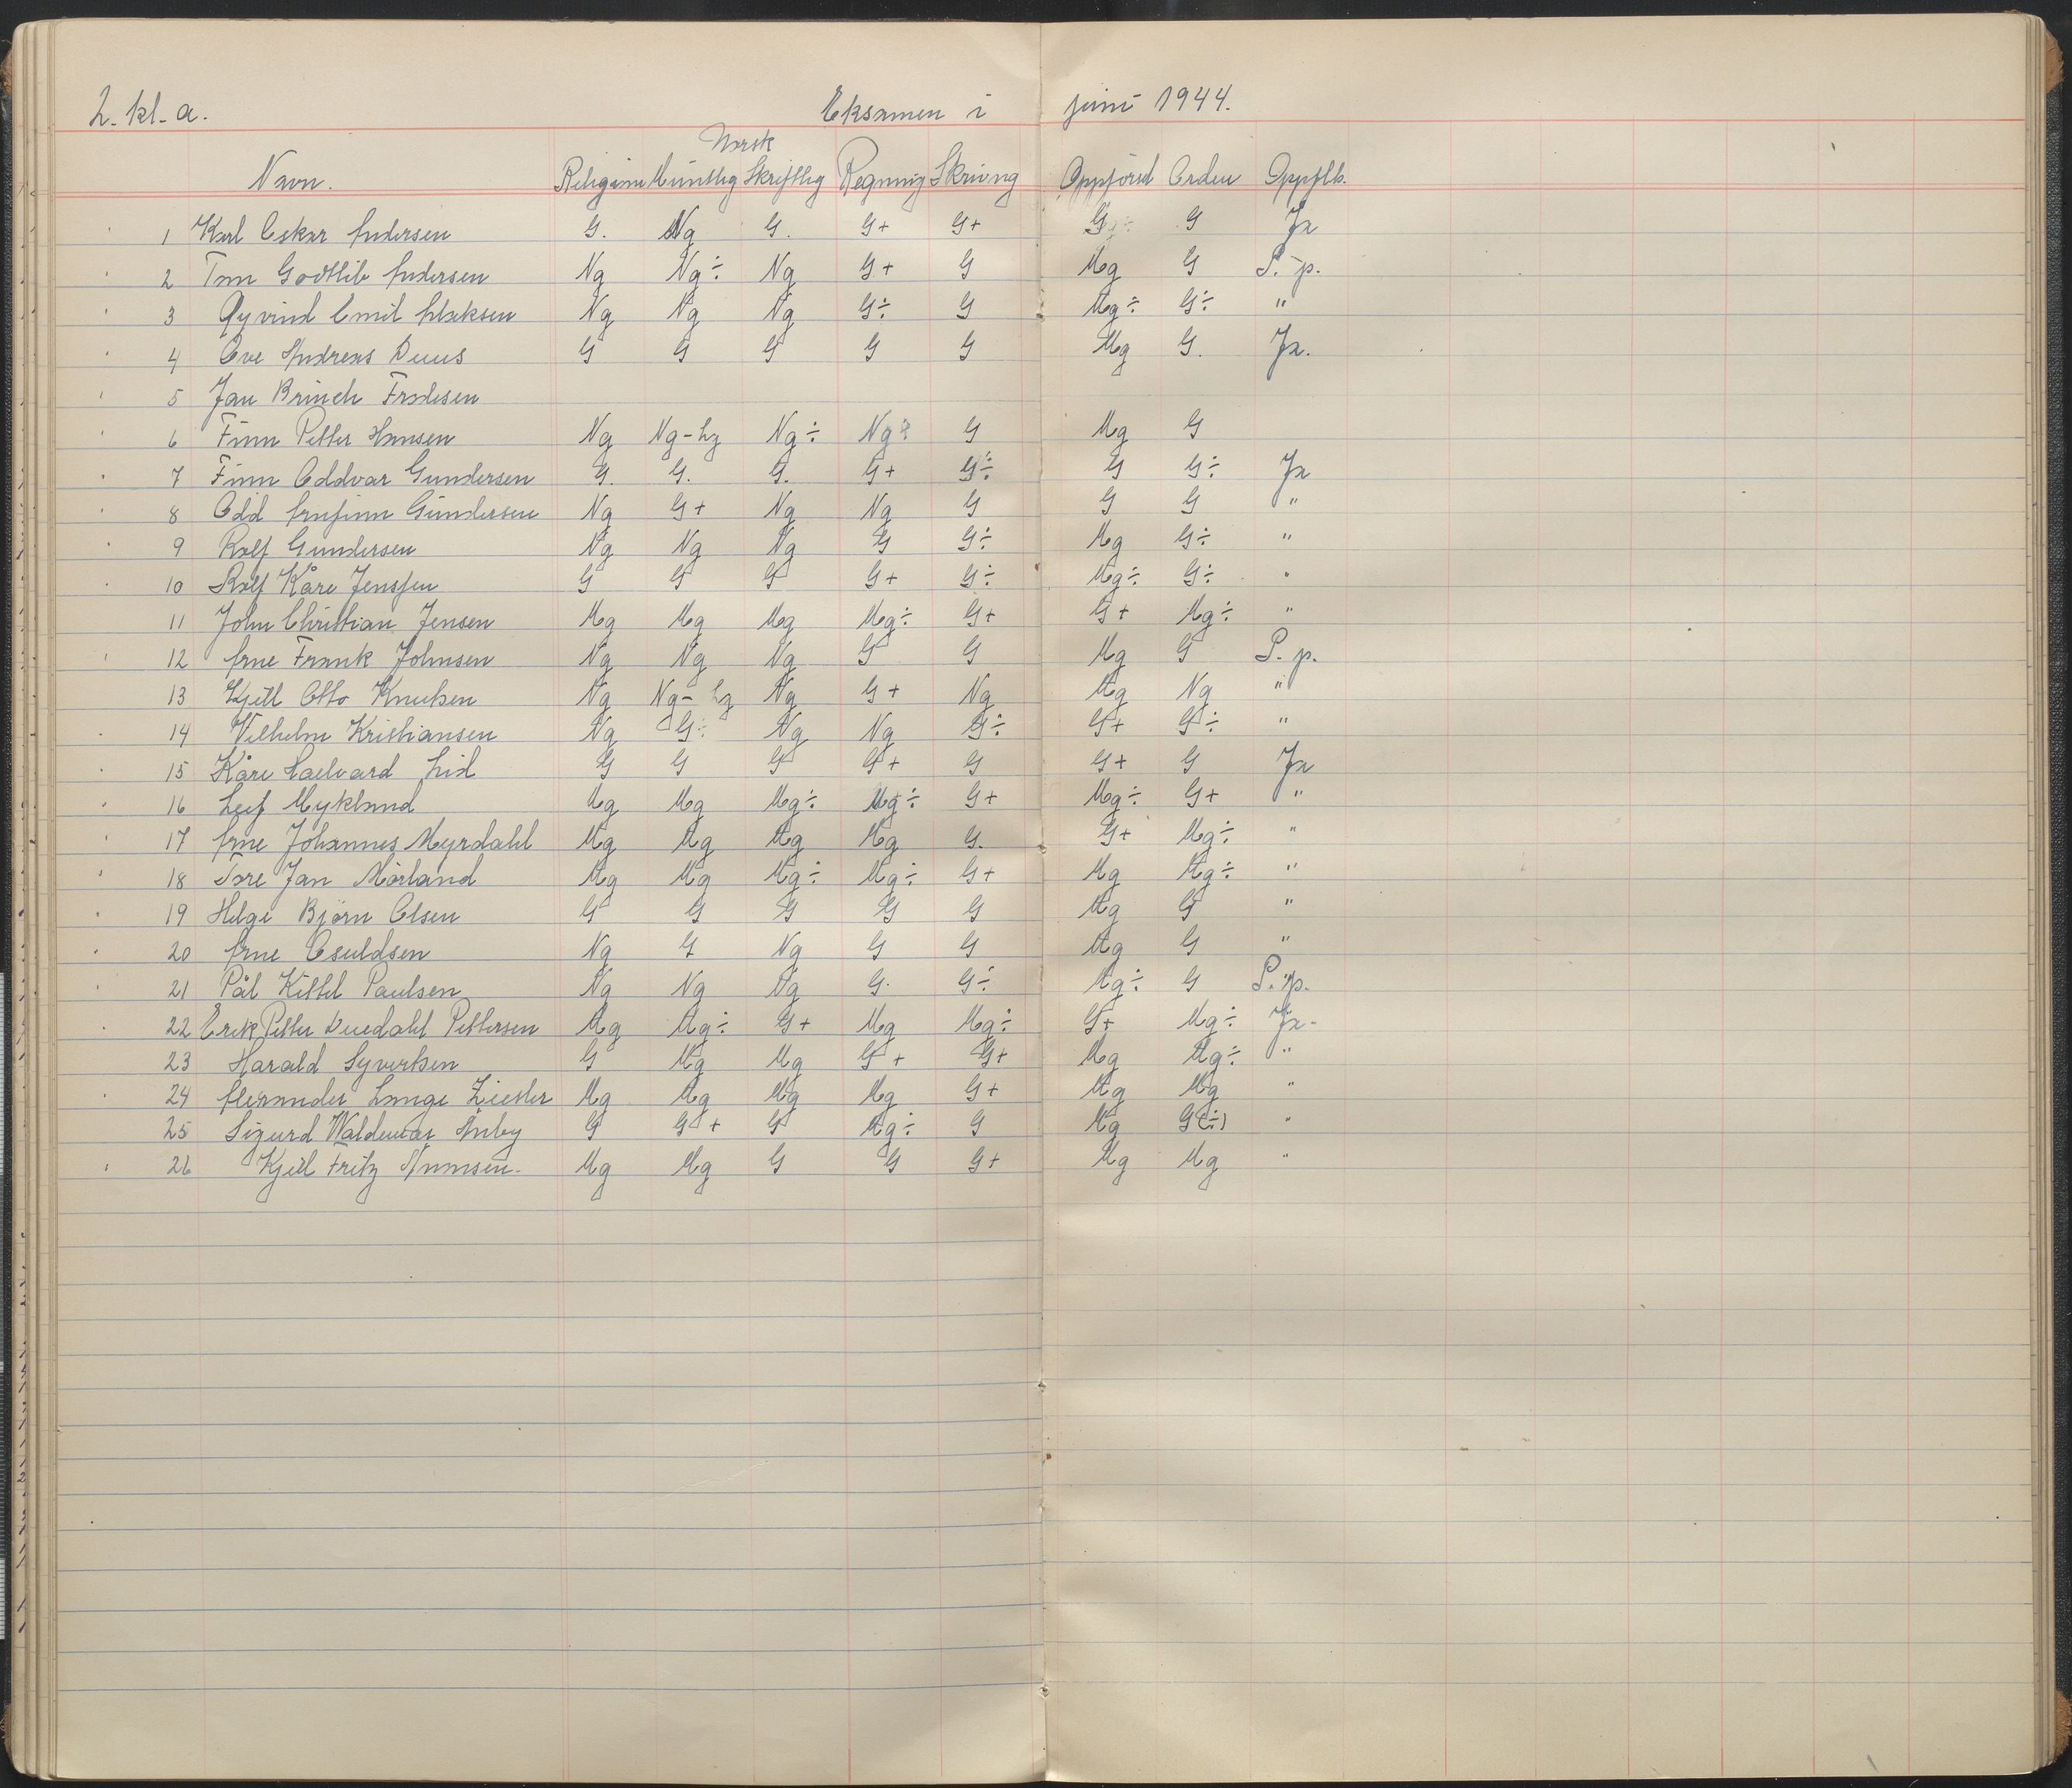 2. kl. a. Eksamen i juni 1944.
Norsk
Navn. Religion Muntlig Skriftlig Regning Skriving Oppförsel Orden Oppflb.
1 Karl Oskar Andersen G. Ng G. G+ G+ G Ja
2 Tom Godtlib Andersen Ng Ng÷ Ng G+ G Mg G P. p.
3 Øyvind Emil Ng Ng Ng G÷ G Mg÷ G÷ "
4 Ove Andreas Duus G G G G G Mg G. Ja.
5 Jan Brinch Frodesen
6 Finn Petter Hansen Ng Ng-Lg Ng÷ Ng G Mg G
7 Finn Oddvar Gundersen G. G. G. G+ G÷ G G÷ Ja
8 Odd Arnfinn Gundersen Ng G+ Ng Ng G G G "
9 Rolf Gundersen Ng Ng Ng G G÷ Mg G÷ "
10 Rolf Kåre Jenssen G G G G+ G÷ Mg÷ G÷ "
11 John Christian Jensen Mg Mg Mg Mg÷ G+ G+ Mg÷ "
12 Arne Frank Johnsen Ng Ng Ng G G Mg G P. p.
13 Kjell Otto Knutsen Ng Ng-Lg Ng G+ Ng Mg Ng "
14 Vilhelm Kristiansen Ng G÷ Ng Ng G÷ G+ G÷ "
15 Kåre Hallvard Lid G G G G+ G G+ G Ja
16 Leif Mykland Mg Mg Mg÷ Mg÷ G+ Mg÷ G+ "
17 Arne Johannes Myrdahl Mg Mg Mg Mg G. G+ Mg÷ "
18 Tore Jan Mørland Mg Mg Mg÷ Mg÷ G+ Mg Mg÷ "
19 Helge Bjørn Olsen G G G G G Mg G "
20 Arne Osuldsen Ng G Ng G G Mg G "
21 Pål Kittel Paulsen Ng Ng Ng G. G÷ Mg÷ G P. p.
22 Erik Petter Duedahl Pettersen Mg Mg÷ G+ Mg Mg÷ G+ Mg÷ Ja.
23 Harald Syvertsen G Mg Mg G+ G+ Mg Mg÷ "
24 Alexander Lange Ziesler Mg Mg Mg Mg G+ Mg Mg "
25 Sigurd Waldemar Ånby G G+ G Mg÷ G Mg G(÷) "
26 Kjell Fritz Mg Mg G G G+ Mg Mg "